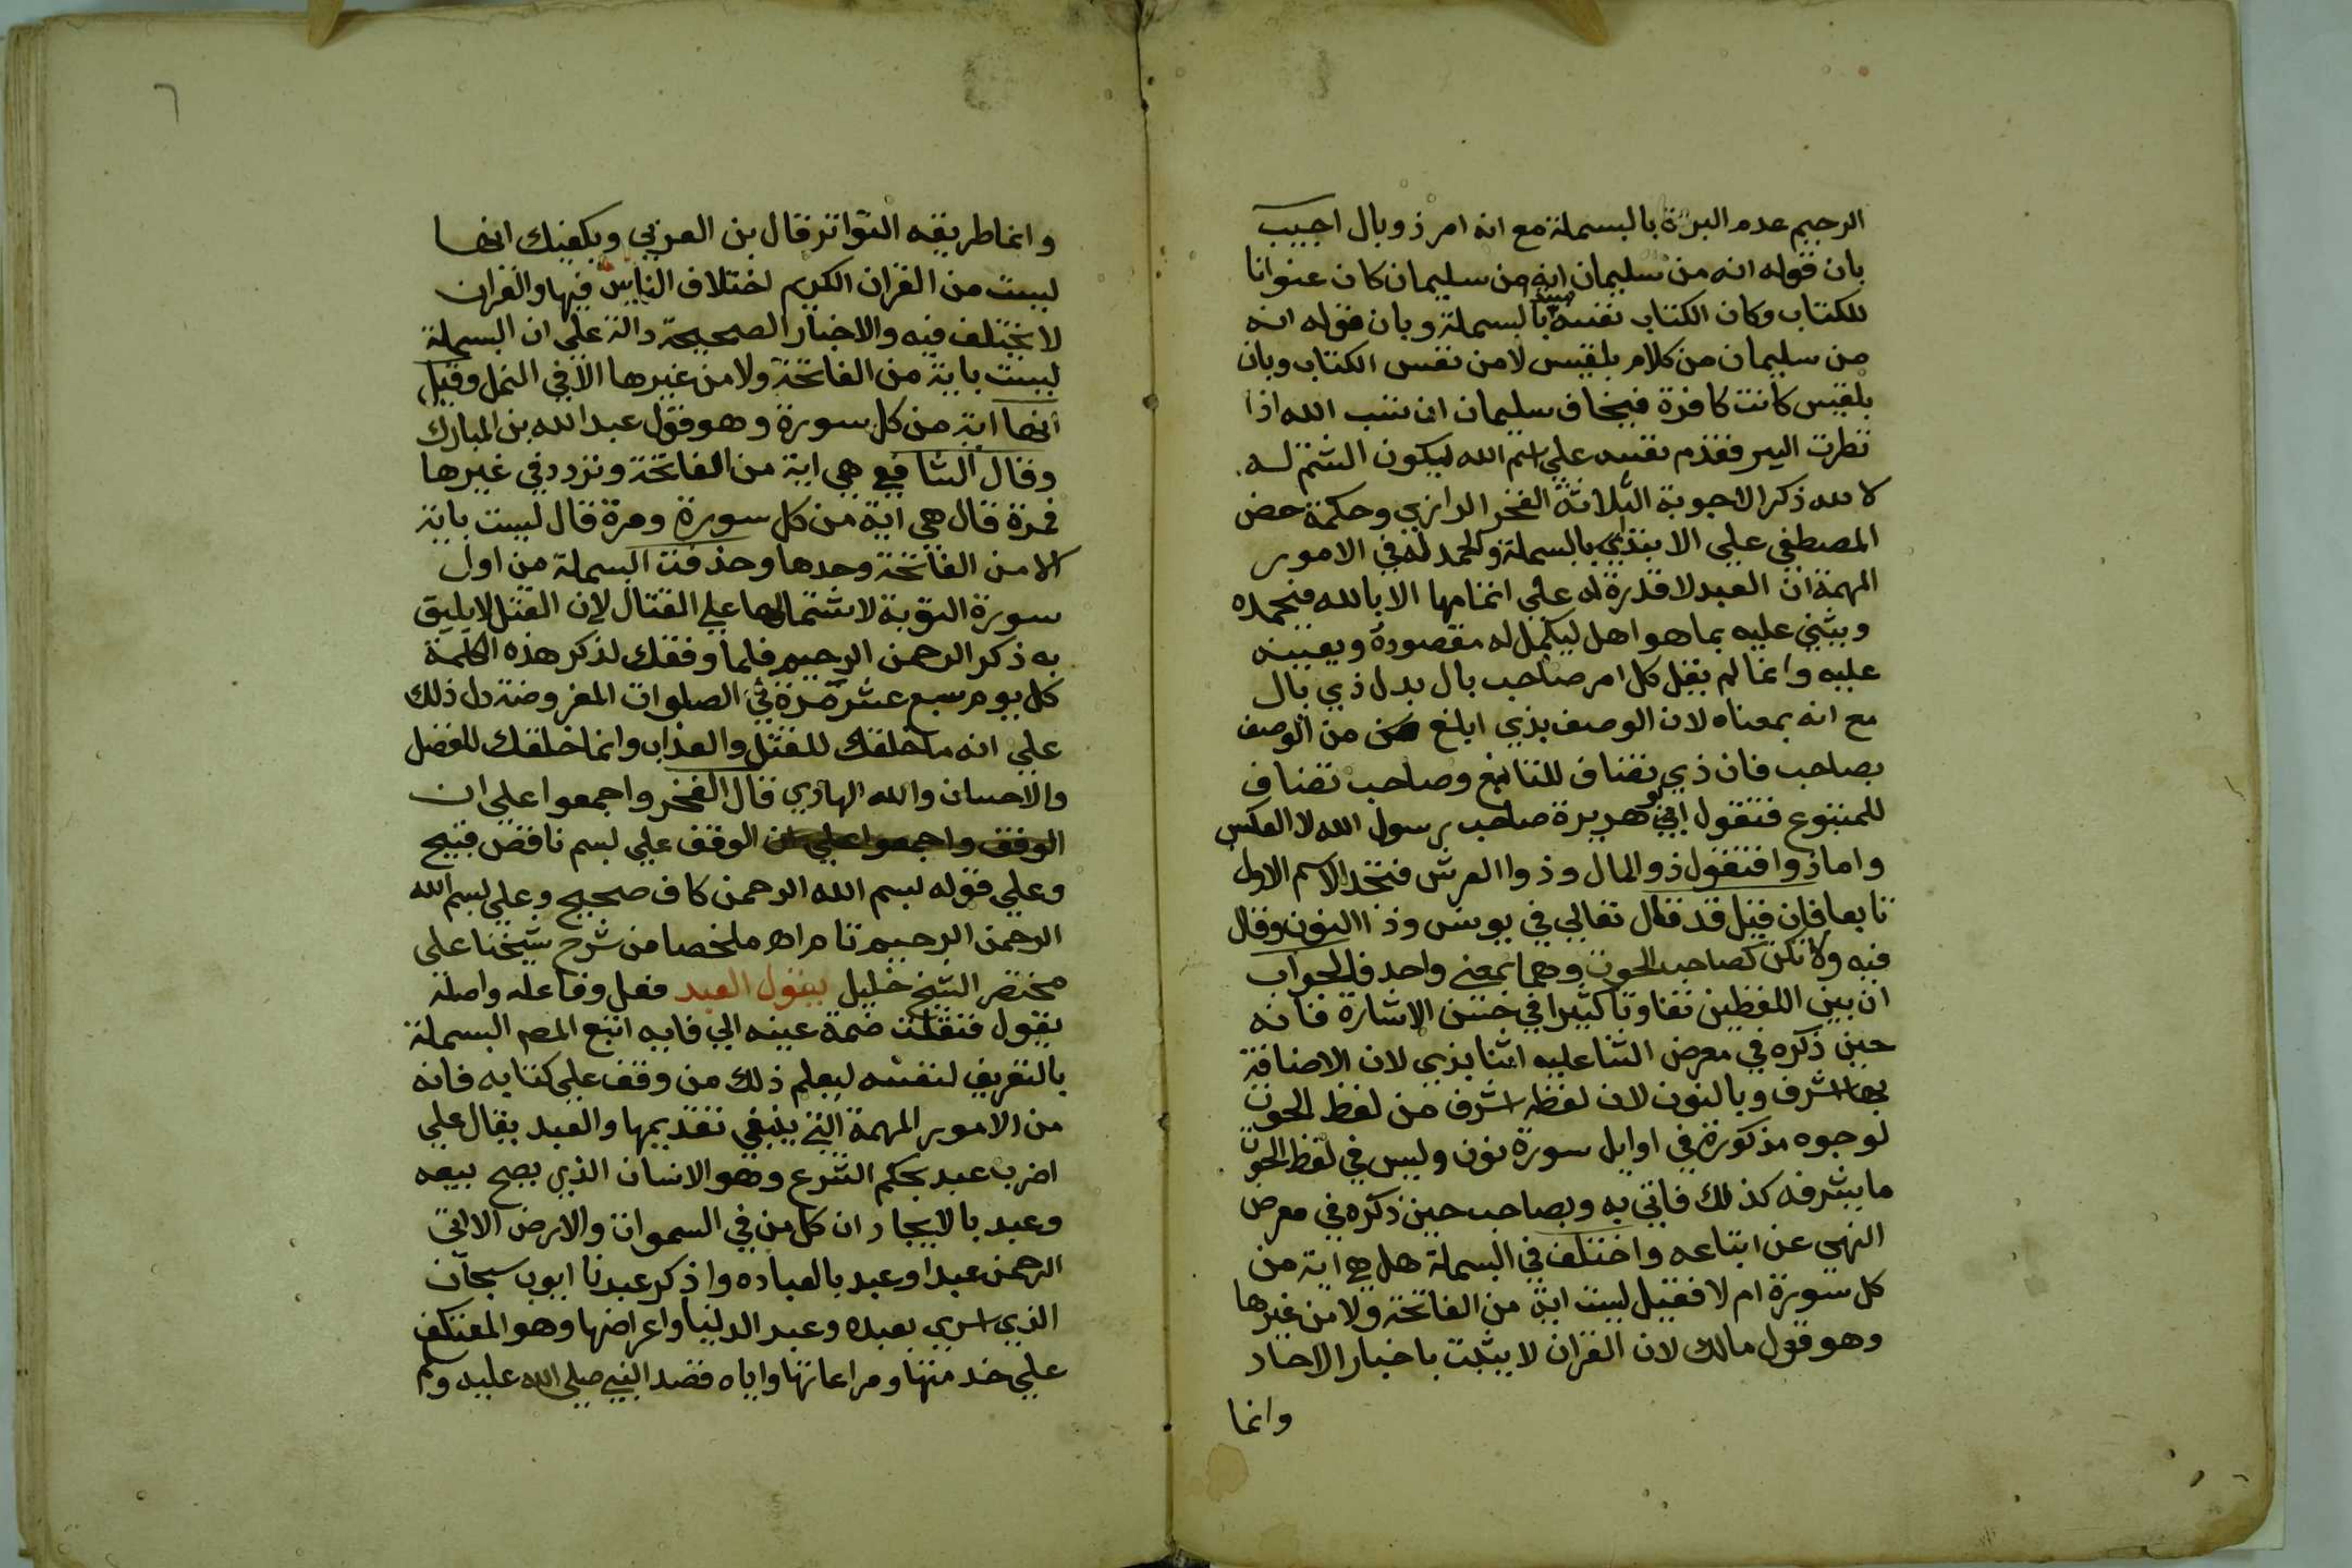 الرحيم عدم البدة بالبسملة مع انه امر ذو بال اجيب
بان قوله انه من سليمان انه من سليمان كان عنوانا
للكتاب وكان الكتاب نفسه مبدا بالبسملة وبان قوله انه
من سليمان من كلام بلقيس لا من نفس الكتاب وبان
بلقيس كانت كافرة فيخاف سليمان ان تسب الله اذا
نظرت اليه فقدم نفسه على اسم الله ليكون الشتم له
لا لله ذكر الاجوبة الثلاثة الفخر الرازي وحكمة حض
المصطفي علي الابتداي بالبسملة والحمد له في الامور
المهمة ان العبد لا قدرة له علي اتمامها الا بالله فيحمده
ويثني عليه بما هو اهل ليكمل له مقصوده ويعينه
عليه وانما لم يقل كل امر صاحب بال بدل ذي بال
مع انه بمعناه لان الوصف بذي ابلغ من الوصف
بصاحب فان ذي تضاف للتابع وصاحب تضاف
للمتبوع فتقول ابو هريرة صاحب رسول الله لا العكس
واما ذوا فتقول ذو المال وذوا العرش فتجد الاسم الاول
تابعا فان قيل قد قال تعالي في يونس وذا النون وقال
فيه ولا تكن كصاحب الحوت وهما بمعني واحد فالجواب
ان بين اللفظين تفاوتا كثيرا في حسن الاشارة فانه
حين ذكره في معرض الثنا عليه اتنا بذي لان الاضافة
بها اشرف وبالنون لان لفظه اشرف من لفظ الحوت
لوجوه مذكورة في اوايل سورة نون وليس في لفظ الحوت
ما يشرفه كذلك فاتي به وبصاحب حين ذكره في معرض
النهي عن اتباعه واختلف في البسملة هل هي اية من
كل سورة ام لا فقيل ليست اية من الفاتحة ولا من غيرها
وهو قول مالك لان القران لا يثبت باخبار الاحاد
وانما
٦
وانما طريقه التواتر قال بن العربي ويكفيك انها
ليست من القران الكريم اختلاف الناس فيها والقران
لا يختلف فيه والاخبار الصحيحة دالة على ان البسملة
ليست باية من الفاتحة ولا من غيرها الا في النمل وقيل
انها اية من كل سورة وهو قول عبد الله بن المبارك
وقال الشافعي هي اية من الفاتحة وتردد في غيرها
فمرة قال هي اية من كل سورة ومرة قال ليست باية
الا من الفاتحة وحدها وحذفت البسملة من اول
سورة التوبة لاشتمالها علي القتال لان القتل لا يليق
به ذكر الرحمن الرحيم فلما وفقك لذكر هذه الكلمة
كل يوم سبع عشر مرة في الصلوات المفروضة دل ذلك
علي انه ما خلقك للقتل والعذاب وانما خلقك للفضل
والاحسان والله الهادي قال الفخر واجمعوا علي ان
الوقف واجمعوا على ان الوقف علي بسم ناقص قبيح
وعلي قوله بسم الله الرحمن كاف صحيح وعلى بسم الله
الرحمن الرحيم تام اه ملخصا من شرح شيخنا على
مختصر الشيخ خليل يقول العبد فعل وفاعله واصله
يقول فنقلت ضمة عينه الي فايه اتبع المص البسملة
بالتعريف لنفسه ليعلم ذلك من وقف على كتابه فانه
من الامور المهمة التي ينبغي تقديمها والعبد يقال علي
اضرب عبد بحكم الشرع وهو الانسان الذي يصح بيعه
وعبد بالايجاد ان كل من في السموات والارض الا اتي
الرحمن عبدا وعبد بالعباده واذكر عبدنا ايوب سبحان
الذي اسري بعبده وعبد الدنيا واعراضها وهو المعتكف
علي خدمتها ومراعاتها واياه قصد النبي صلي الله عليه وسلم